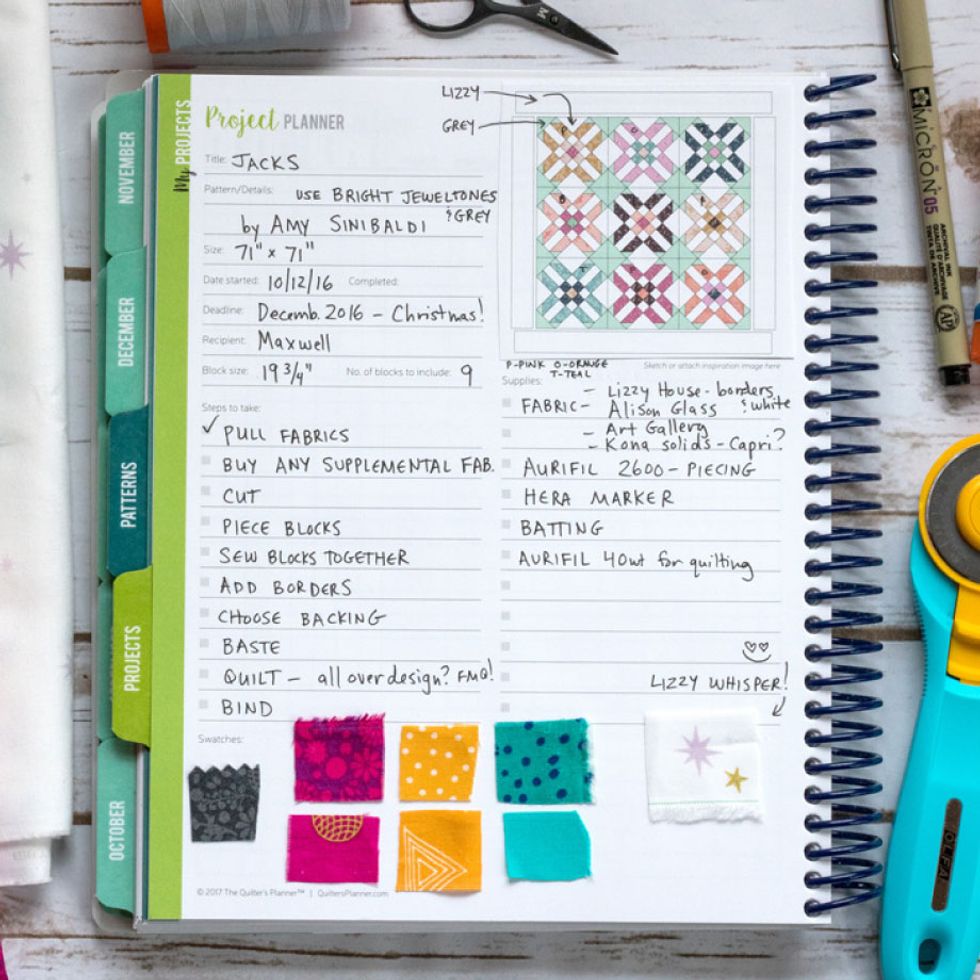 My PROJECTS
Project PLANNER
Title: JACKS
Pattern/Details: USE BRIGHT JEWELTONES
& GREY
by AMY SINIBALDI
Size: 71" x 71"
Date started: 10/12/16 Completed:
Deadline: Decemb. 2016 - Christmas!
Recipient: Maxwell
Block size: 19 3/4" No. of blocks to include: 9
Steps to take:
✓ PULL FABRICS
BUY ANY SUPPLEMENTAL FAB.
CUT
PIECE BLOCKS
SEW BLOCKS TOGETHER
ADD BORDERS
CHOOSE BACKING
BASTE
QUILT - all over design? FMQ!
BIND
Swatches:
© 2017 The Quilter's Planner™ | QuiltersPlanner.com
LIZZY
GREY
P-PINK O-ORANGE
T-TEAL
Sketch or attach inspiration image here
Supplies:
- Lizzy House - borders
FABRIC - Alison Glass & white
- Art Gallery
- Kona solids - Capri?
AURIFIL 2600 - PIECING
HERA MARKER
BATTING
AURIFIL 40wt for quilting
LIZZY WHISPER!
NOVEMBER
DECEMBER
PATTERNS
PROJECTS
OCTOBER
MICRON 05
ARCHIVAL INK
QUALITÉ D'ARCHIVAGE
TINTA DE ARCHIVO
AP
OLFA
M